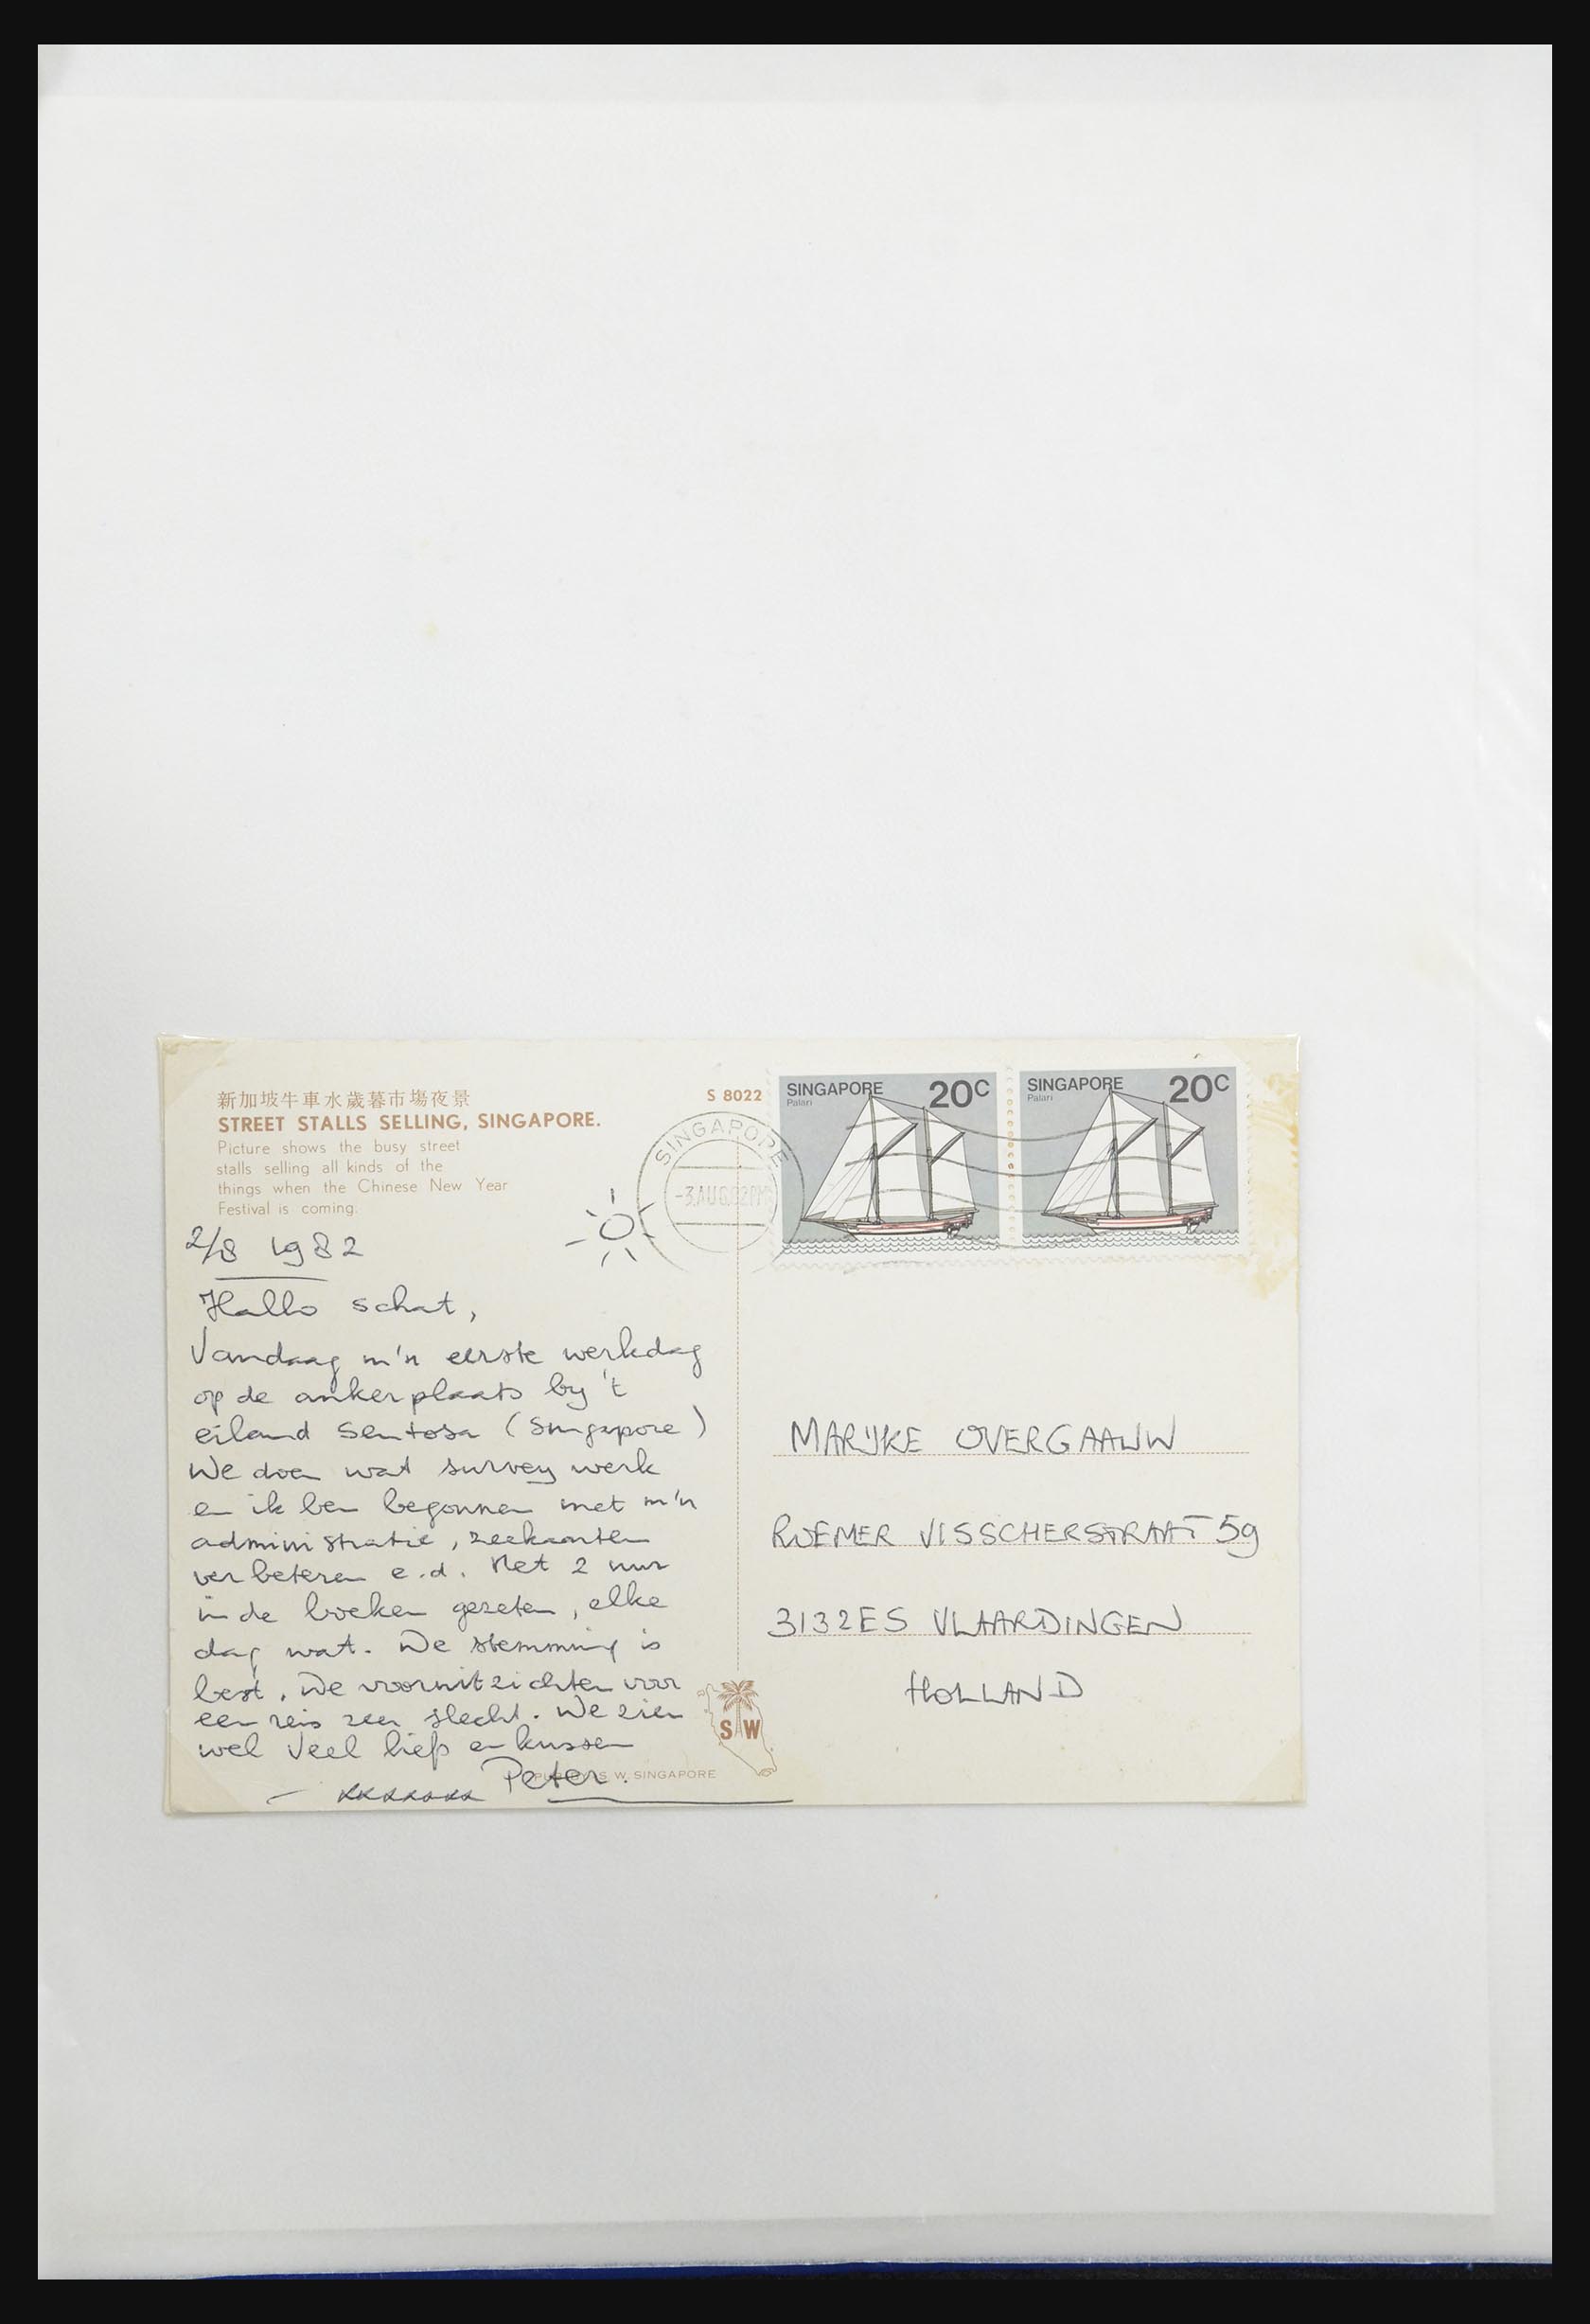 新加坡牛車水歲暮市場夜景
STREET STALLS SELLING, SINGAPORE.
Picture shows the busy street
stalls selling all kinds of the
things when the Chinese New Year
Festival is coming.
S 8022
SINGAPORE
-3AUG82
SINGAPORE 20C
Palari
SINGAPORE 20C
Palari
2/8 1982
Hallo schat,
Vandaag m'n eerste werkdag
op de ankerplaats by 't
eiland Sentosa (Singapore)
We doen wat survey werk
en ik ben begonnen met m'n
administratie, zeekaarten
verbeteren e.d. Met 2 uur
in de boeken gezeten, elke
dag wat. De stemming is
best. De vooruitzichten voor
een reis zeer slecht. We zien
wel Veel liefs en kussen
Peter.
xxxxxxx
S W
S.W. SINGAPORE
MARIJKE OVERGAAUW
ROEMER VISSCHERSTRAAT 59
3132ES VLAARDINGEN
HOLLAND